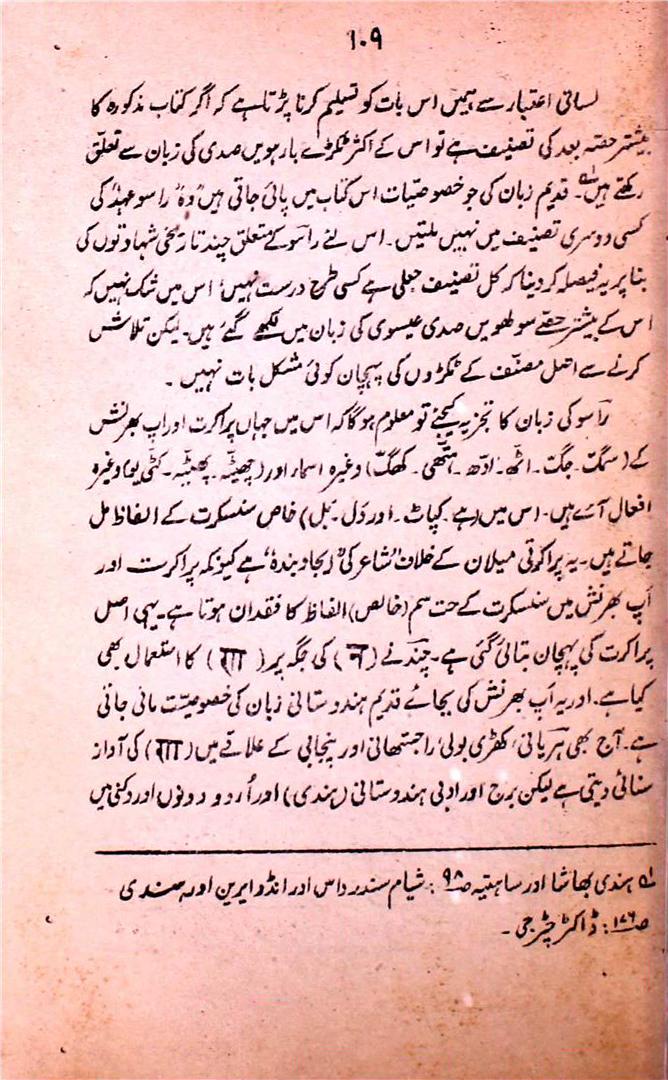 ۱۰۹
لسانی اعتبار سے ہمیں اس بات کو تسلیم کرنا پڑتا ہے کہ اگر کتاب مذکورہ کا
بیشتر حصہ بعد کی تصنیف ہے تو اس کے اکثر ٹکڑے بارہویں صدی کی زبان سے تعلّق
رکھتے ہیں۔ قدیم زبان کی جو خصوصیّات اس کتاب میں پائی جاتی ہیں وہ راسو عہد کی
کسی دوسری تصنیف میں نہیں ملتیں۔ اس لئے راسو کے متعلق چند تاریخی شہادتوں کی
بنا پر یہ فیصلہ کر دینا کہ کل تصنیف جعلی ہے کسی طرح درست نہیں، اس میں شک نہیں کہ
اس کے بیشتر حصّے سولھویں صدی عیسوی کی زبان میں لکھے گئے ہیں۔ لیکن تلاش
کرنے سے اصل مصنّف کے ٹکڑوں کی پہچان کوئی مشکل بات نہیں۔
راسو کی زبان کا تجزیہ کیجئے تو معلوم ہوگا کہ اس میں جہاں پراکرت اور اپ بھرنش
کے (سمگ۔ جگت۔ اٹھ۔ ادّھ۔ ہتّھی۔ کھگّ) وغیرہ اسماء اور (چھیٹّہ۔ پھیٹّہ۔ کٹّی یو) وغیرہ
افعال آئے ہیں۔ اس میں (ہے۔ کپاٹ۔ اور دَل۔ بَل) خاص سنسکرت کے الفاظ مل
جاتے ہیں۔ یہ پراکرتی میلان کے خلاف "شاعر کی ایجاد بندہ" ہے کیونکہ پراکرت اور
اَپ بھرنش میں سنسکرت کے تت سم (خالص) الفاظ کا فقدان ہوتا ہے۔ یہی اصل
پراکرت کی پہچان بتائی گئی ہے۔ چند نے (न) کی جگہ پر (ण) کا استعمال بھی
کیا ہے۔ اور یہ اَپ بھرنش کی بجائے قدیم ہندوستانی زبان کی خصوصیّت مانی جاتی
ہے۔ آج بھی ہریانی، کھڑی بولی، راجستھانی اور پنجابی کے علاقے میں (ण) کی آواز
سنائی دیتی ہے لیکن برج اور ادبی ہندوستانی (ہندی) اور اُردو دونوں اور دکنی میں
لہ ہندی بھاشا اور ساہتیہ صـ۹۸: شیام سندر داس اور انڈو ایرین اور ہندی
صـ۱۷۶: ڈاکٹر چٹرجی۔